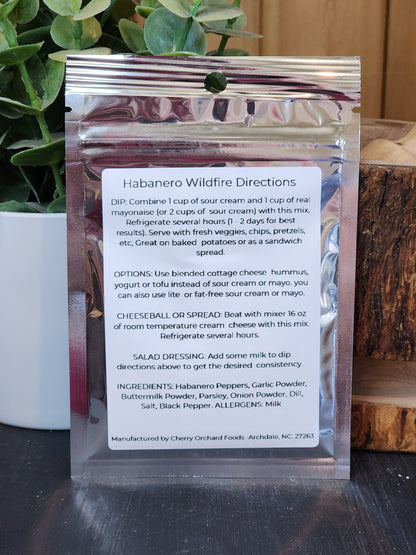 Habanero Wildfire Directions
DIP: Combine 1 cup of sour cream and 1 cup of real
mayonaise (or 2 cups of sour cream) with this mix.
Refrigerate several hours (1 - 2 days for best
results). Serve with fresh veggies, chips, pretzels,
etc, Great on baked potatoes or as a sandwich
spread.
OPTIONS: Use blended cottage cheese hummus,
yogurt or tofu instead of sour cream or mayo. you
can also use lite or fat-free sour cream or mayo.
CHEESEBALL OR SPREAD: Beat with mixer 16 oz
of room temperature cream cheese with this mix.
Refrigerate several hours.
SALAD DRESSING: Add some milk to dip
directions above to get the desired consistency.
INGREDIENTS: Habanero Peppers, Garlic Powder,
Buttermilk Powder, Parsley, Onion Powder, Dill,
Salt, Black Pepper. ALLERGENS: Milk
Manufactured by Cherry Orchard Foods -Archdale, NC. 27263